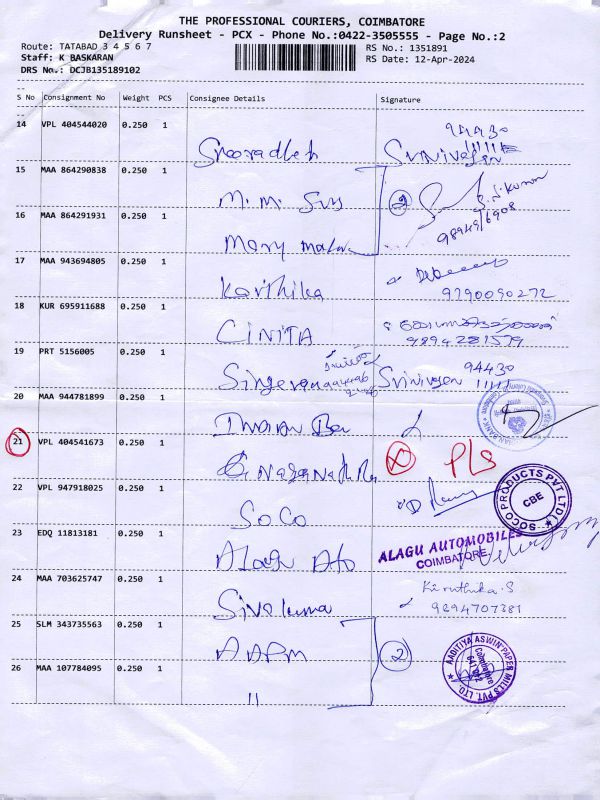 THE PROFESSIONAL COURIERS, COIMBATORE
Delivery Runsheet - PCX - Phone No.:0422-3505555 - Page No.:2
Route: TATABAD 3 4 5 6 7
RS No.: 1351891
Staff: K BASKARAN
RS Date: 12-Apr-2024
DRS No.: DCJB135189102
S No Consignment No Weight PCS Consignee Details Signature
14 VPL 404544020 0.250 1
94430
15 MAA 864290838 0.250 1
M. M.
2
98949/6908
16 MAA 864291931 0.250 1
Mary
17 MAA 943694805 0.250 1
Karthika
9790090272
18 KUR 695911688 0.250 1
CINITA
9894281579
19 PRT 5156005 0.250 1
Srinivasan 94430
20 MAA 944781899 0.250 1
21 VPL 404541673 0.250 1
X PLS
22 VPL 947918025 0.250 1
SOCO
SOCO PRODUCTS PVT. LTD.
CBE
23 EDQ 11813181 0.250 1
Alagu Ato
ALAGU AUTOMOBILES
COIMBATORE
24 MAA 703625747 0.250 1
Sivakuma
Kiruthika.S
9894707381
25 SLM 343735563 0.250 1
AAPM
2
AADITIYA ASWIN PAPER MILLS PVT. LTD.
Coimbatore
26 MAA 107784095 0.250 1
11